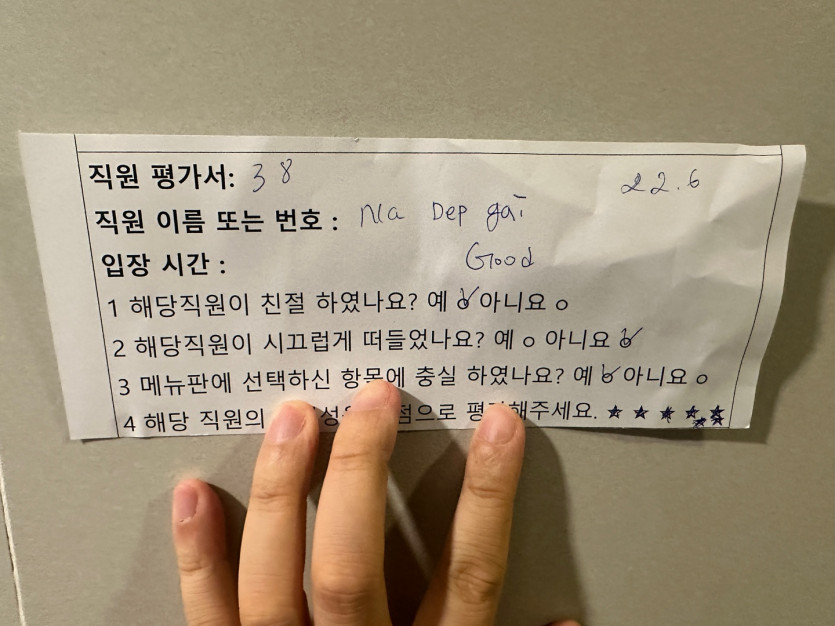 직원 평가서: 38 22.6
직원 이름 또는 번호 : Nla Dep gai
입장 시간 : Good
1 해당직원이 친절 하였나요? 예 o 아니요 o
2 해당직원이 시끄럽게 떠들었나요? 예 o 아니요 o
3 메뉴판에 선택하신 항목에 충실 하였나요? 예 o 아니요 o
4 해당 직원의 해주세요. ★ ★ ★ ★ ★